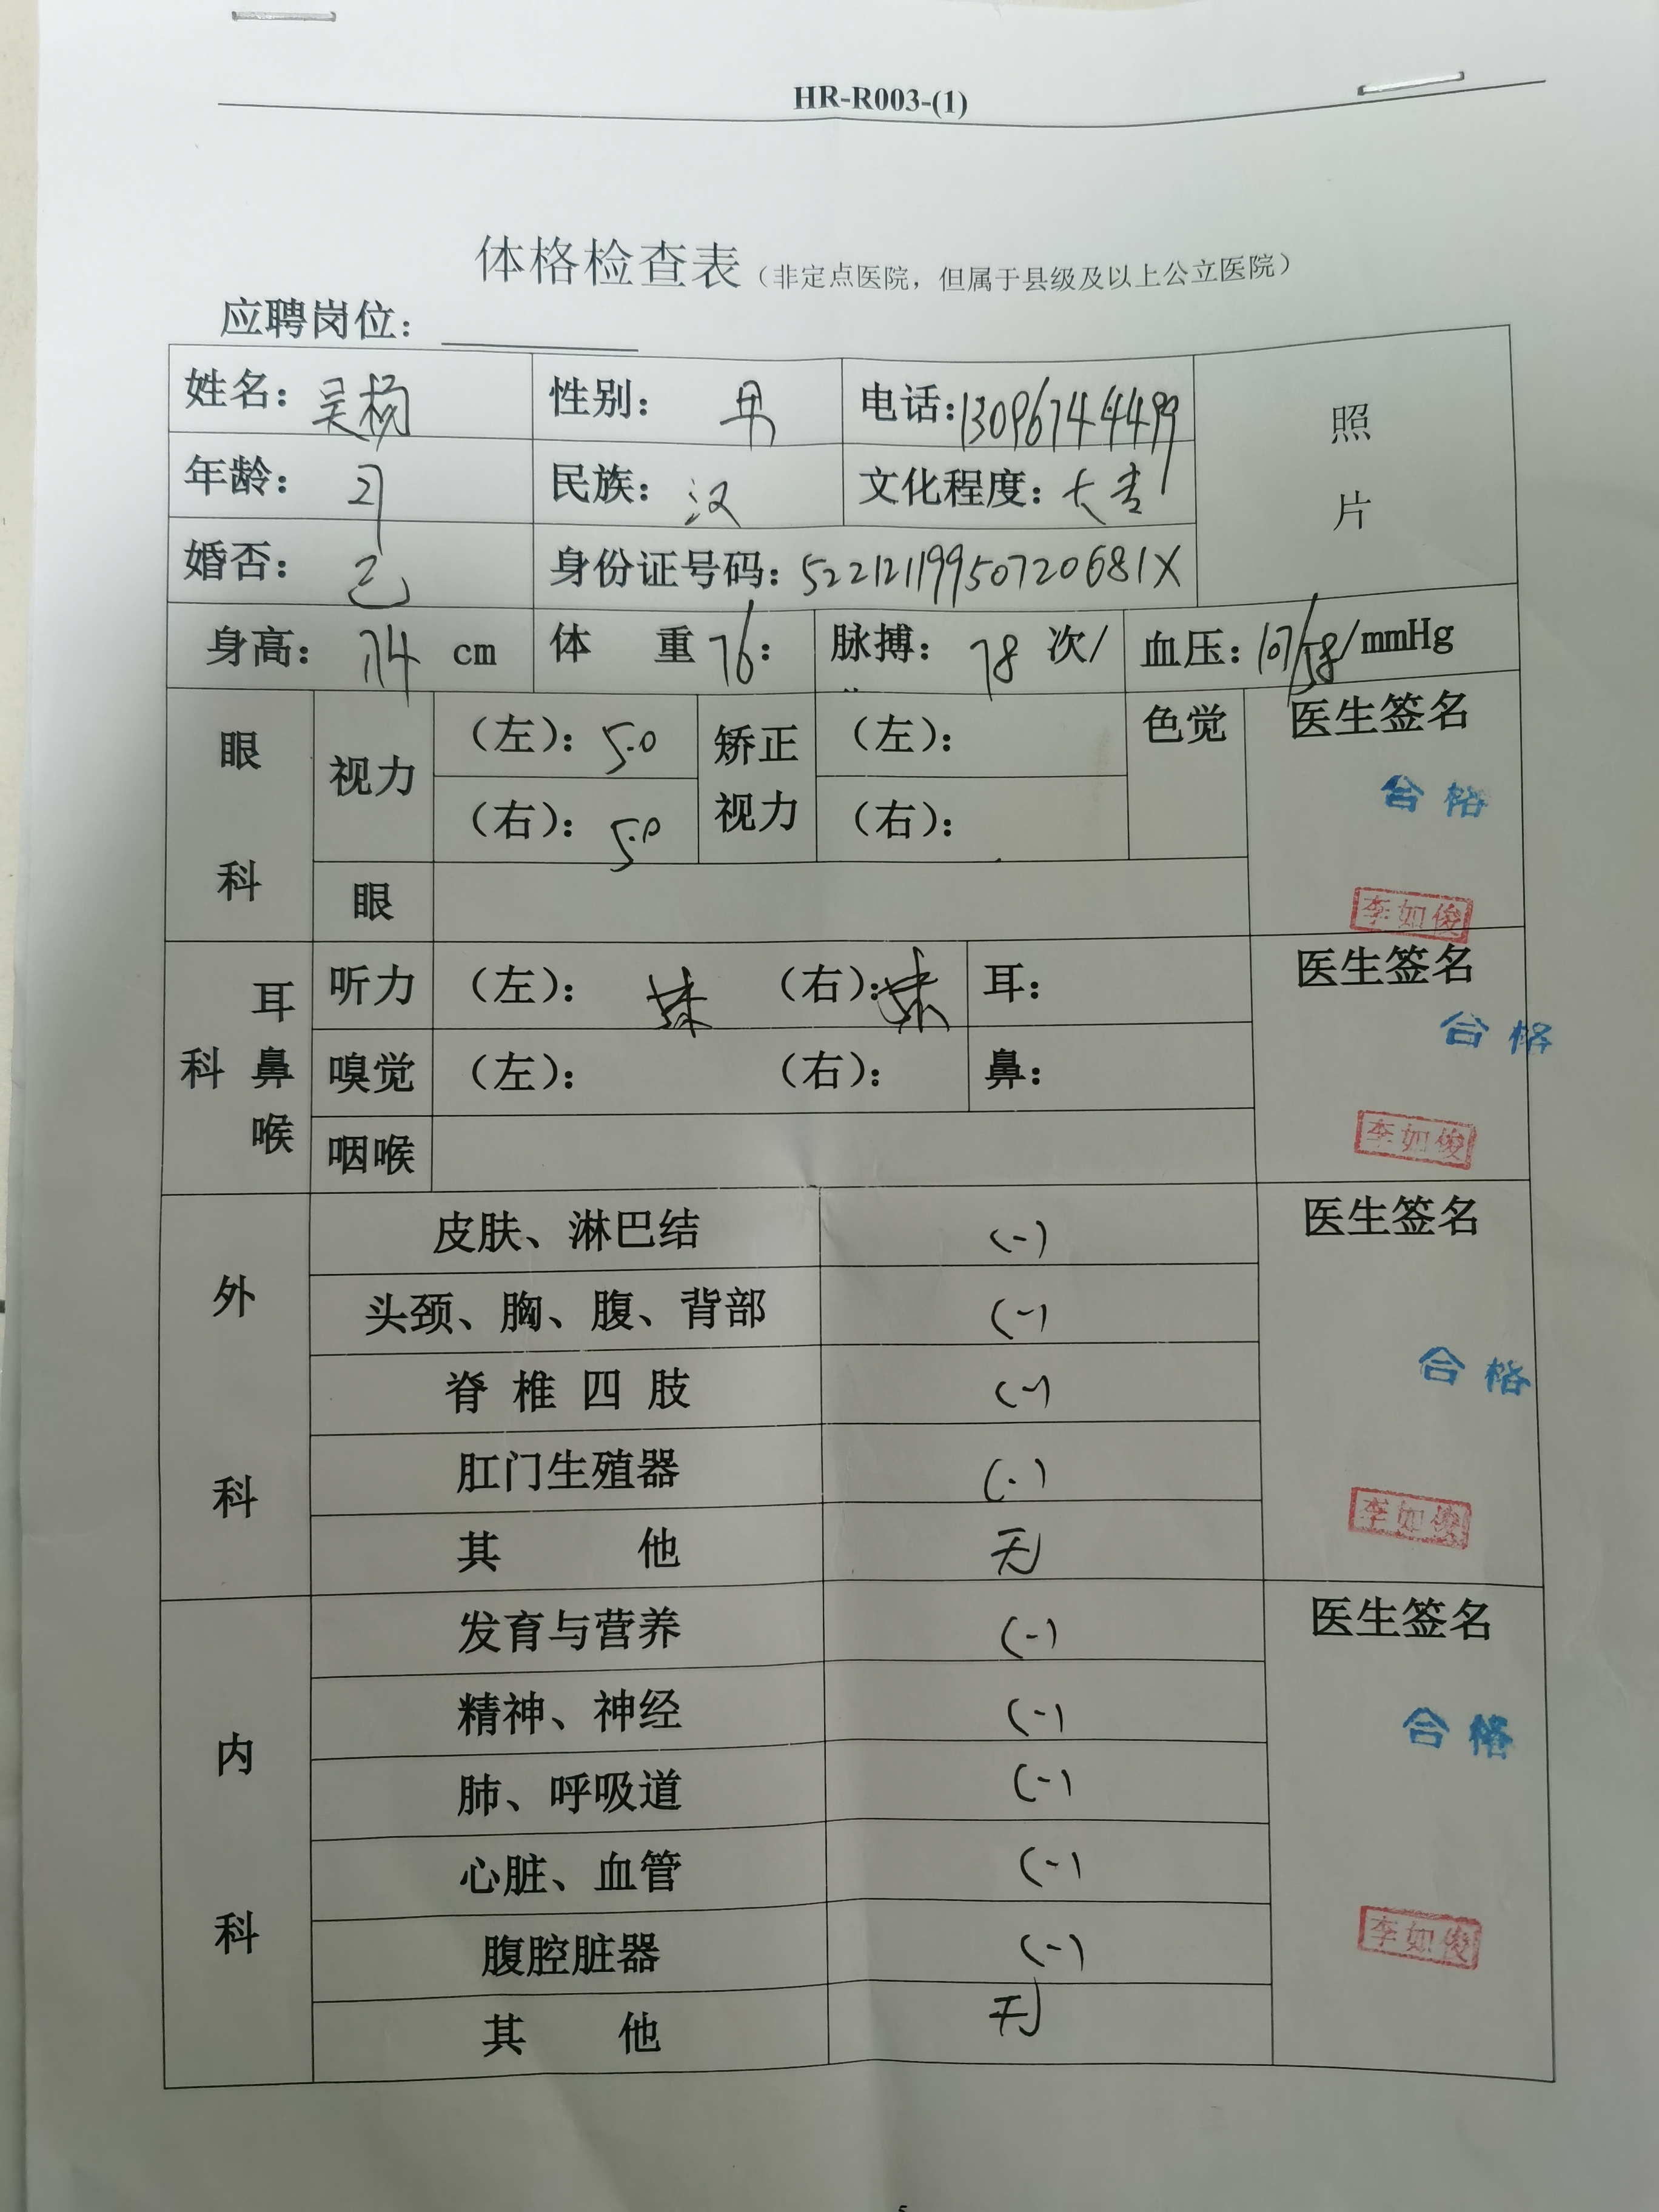 HR-R003-(1)
体格检查表（非定点医院，但属于县级及以上公立医院）
应聘岗位：
姓名：吴杨 性别：男 电话：13096744499 照片
年龄： 民族：汉 文化程度：大专
婚否：已 身份证号码：52212119950720681X
身高：174 cm 体 重76： 脉搏：78 次/ 血压：107/58/mmHg
眼科 视力 （左）：5.0 矫正视力 （左）： 色觉 医生签名
（右）：5.0 （右）： 合格
眼 李如俊
耳鼻喉科 听力 （左）： （右）： 耳： 医生签名
嗅觉 （左）： （右）： 鼻： 合格
咽喉 李如俊
外科 皮肤、淋巴结 (-) 医生签名
头颈、胸、腹、背部 (-)
脊 椎 四 肢 (-) 合格
肛门生殖器 (-)
其 他 无 李如俊
内科 发育与营养 (-) 医生签名
精神、神经 (-) 合格
肺、呼吸道 (-)
心脏、血管 (-)
腹腔脏器 (-) 李如俊
其 他 无